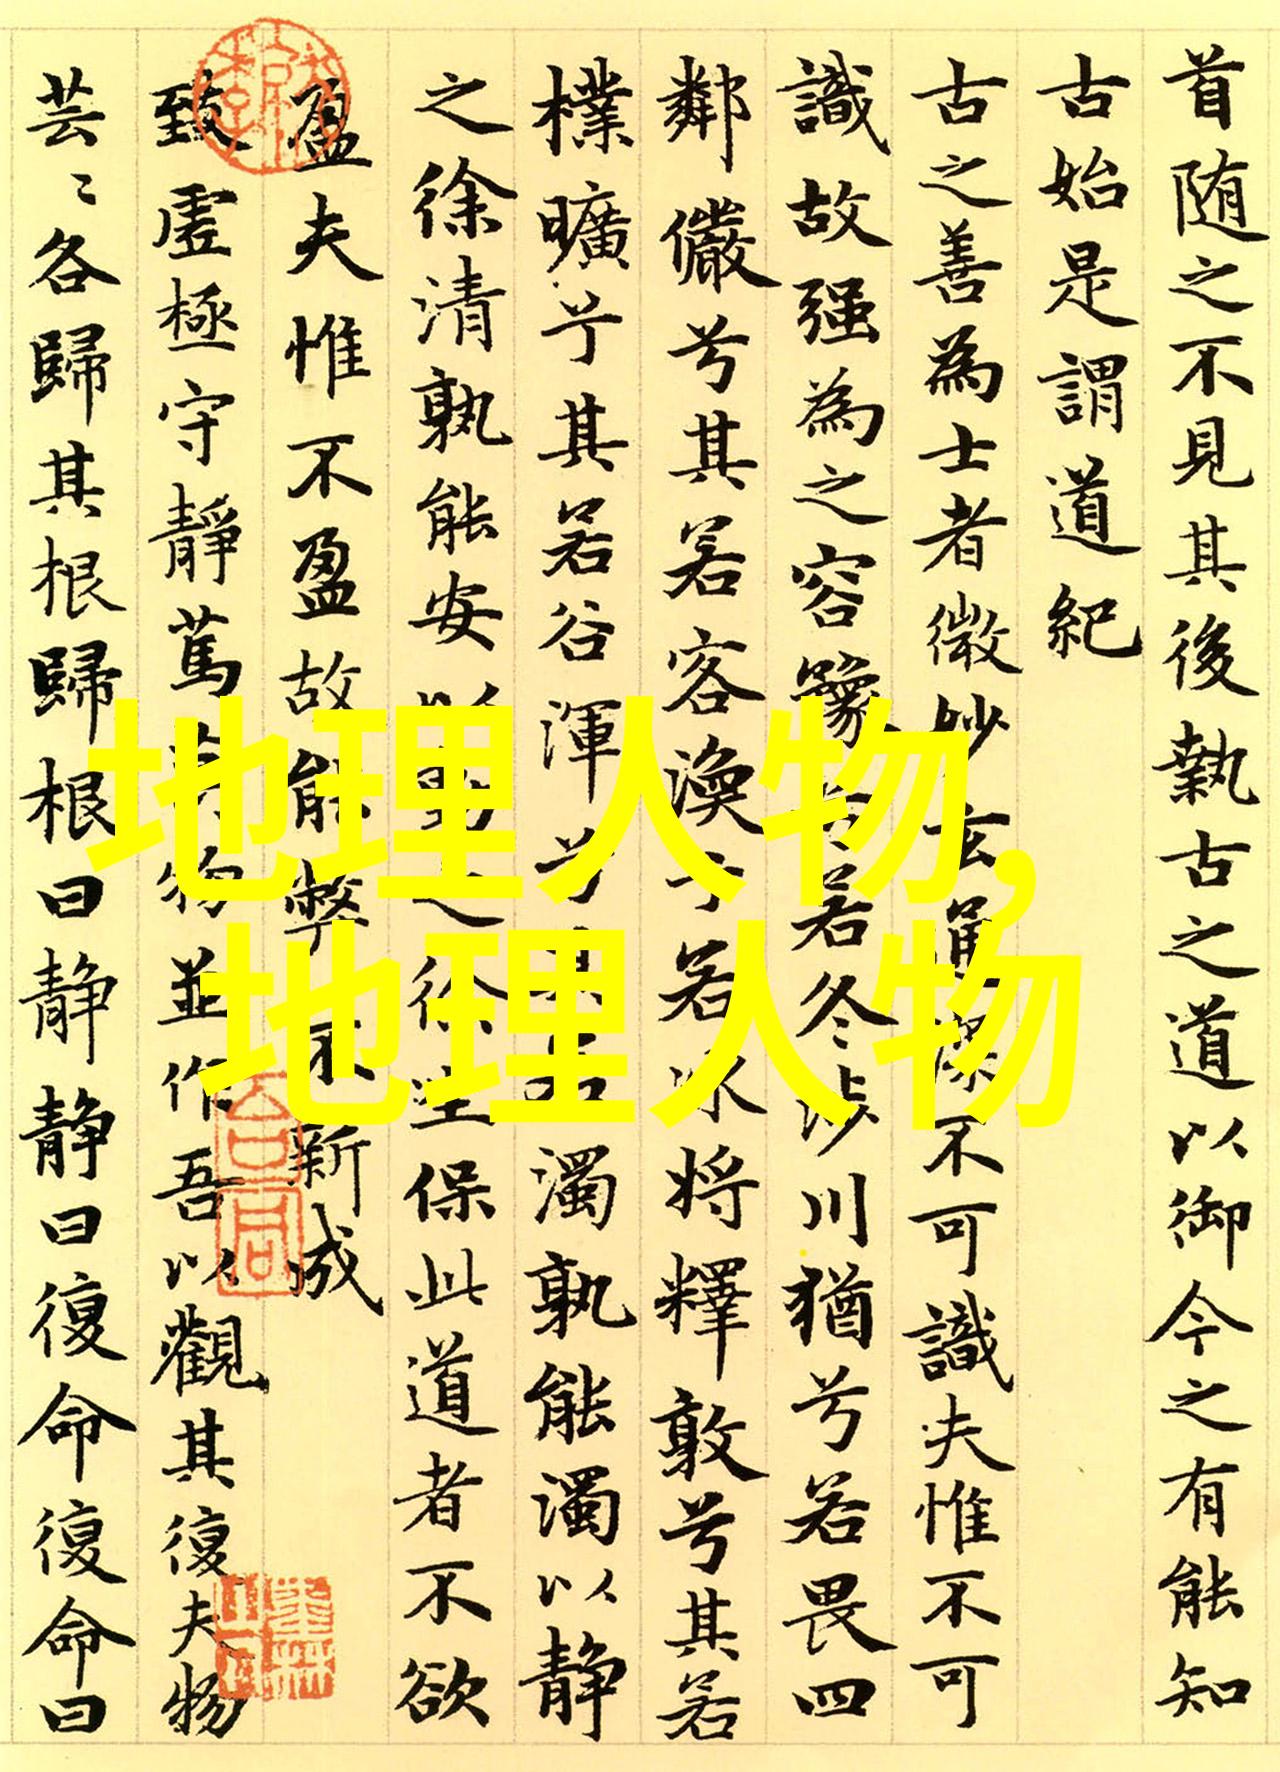 首随之不見其後執古之道以御今之有能知
古始是謂道紀
古之善為士者微妙玄通深不可識夫惟不可
識故强為之容豫兮若冬涉川猶兮若畏四
鄰儼兮其若客渙兮若冰將釋敦兮其若
樸曠兮其若谷渾兮其若濁孰能濁以静
之徐清孰能安以動之徐生保此道者不欲
盈夫惟不盈故能弊不新成
致虛極守靜篤萬物並作吾以觀其復夫物
芸〻各歸其根歸根曰静静曰復命復命曰
地理人物,
地理人物